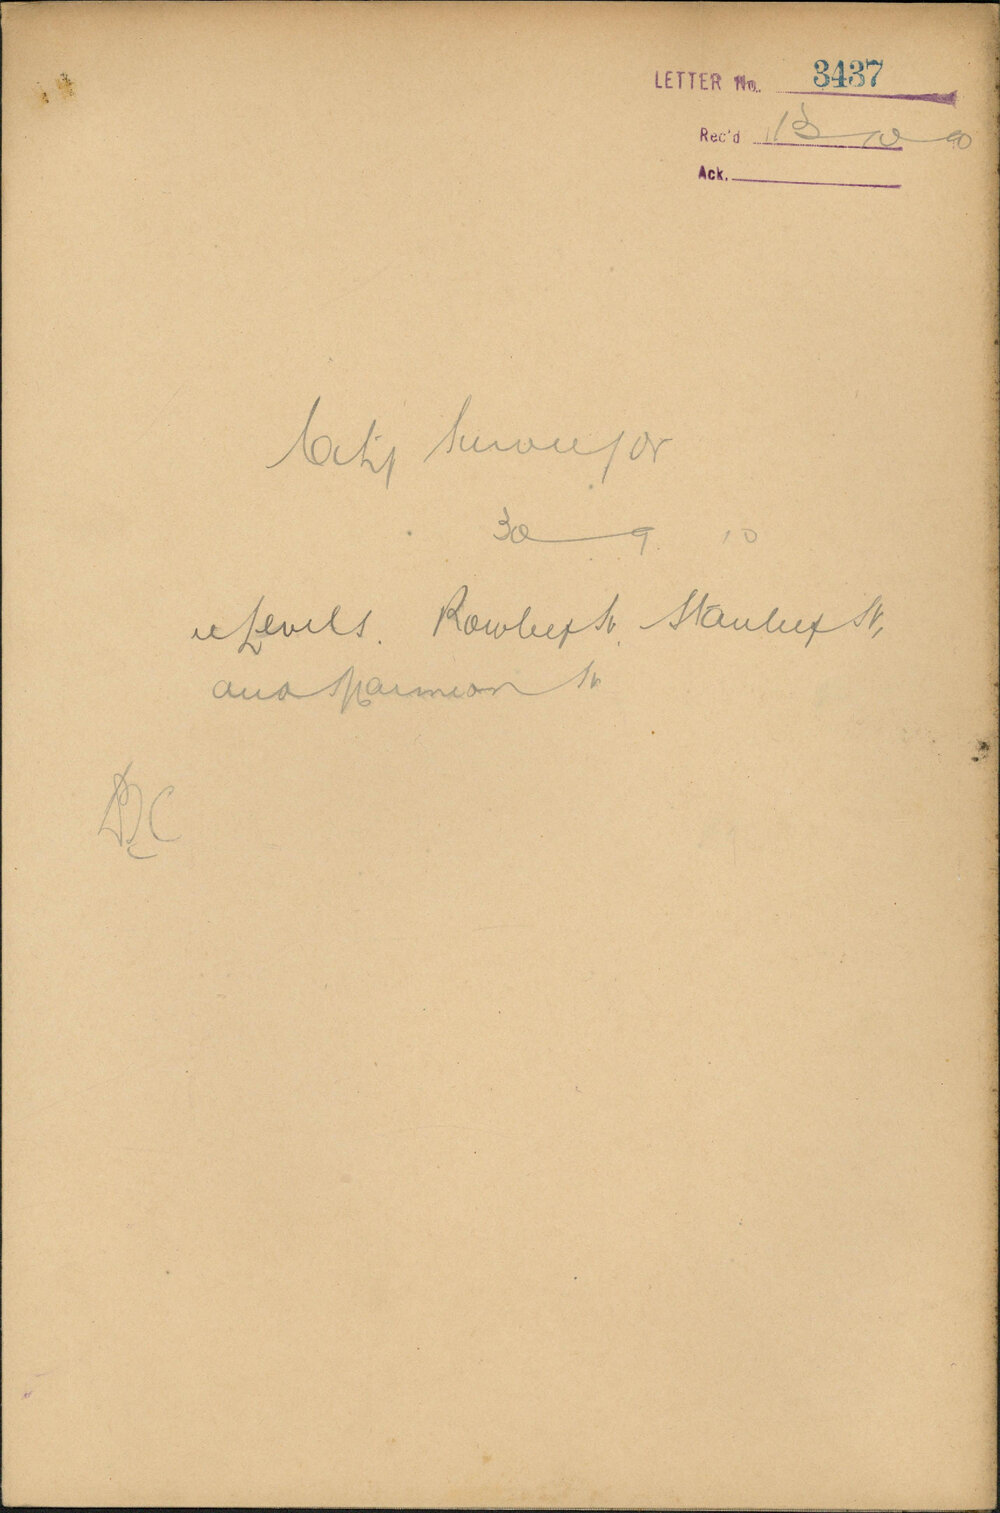 LETTER No. 3437
Rec'd 13 10 10
Ack.
City Surveyor
30 9 10
re Levels. Rowley St. Stanley St,
and Marmion St